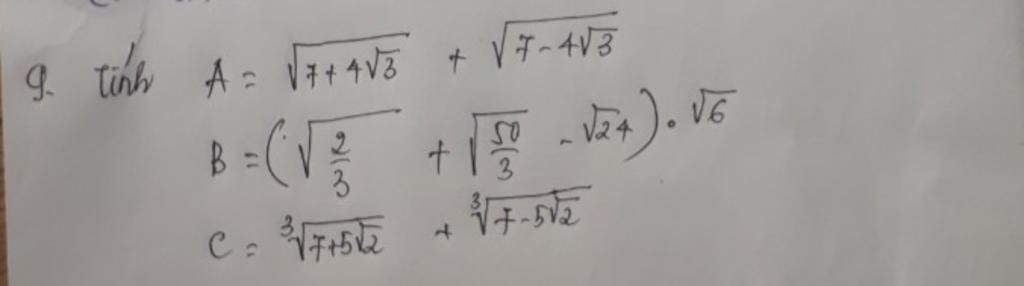 9. Tính A = √(7+4√3) + √(7-4√3)
B = (√(2/3) + √(50/3) - √24) . √6
C = ∛(7+5√2) + ∛(7-5√2)